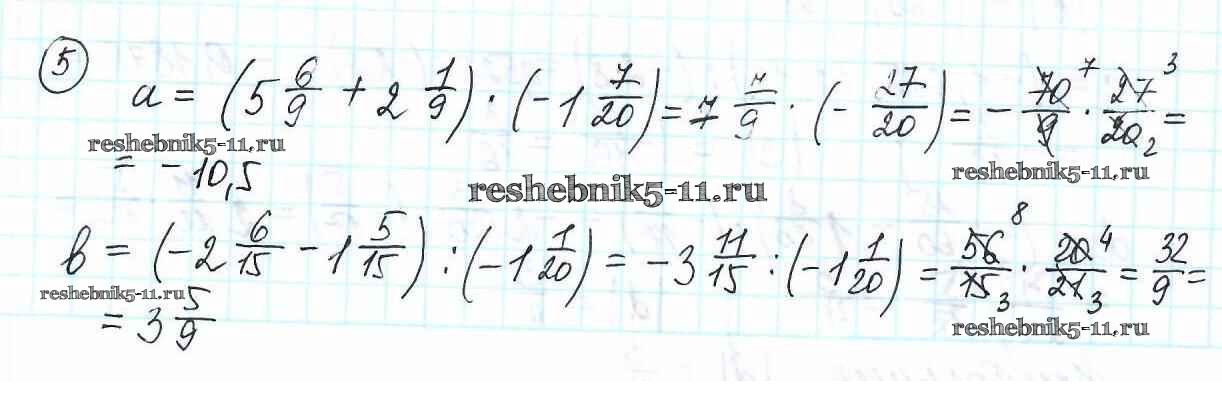 5
a = (5 6/9 + 2 1/9) · (-1 7/20) = 7 7/9 · (- 27/20) = - 70/9 · 27/20 =
7 3 2
reshebnik5-11.ru
reshebnik5-11.ru
= -10,5
reshebnik5-11.ru
в = (-2 6/15 - 1 5/15) : (-1 1/20) = -3 11/15 : (-1 1/20) = 56/15 · 20/21 = 32/9 =
8 4 3 3
reshebnik5-11.ru
= 3 5/9
reshebnik5-11.ru